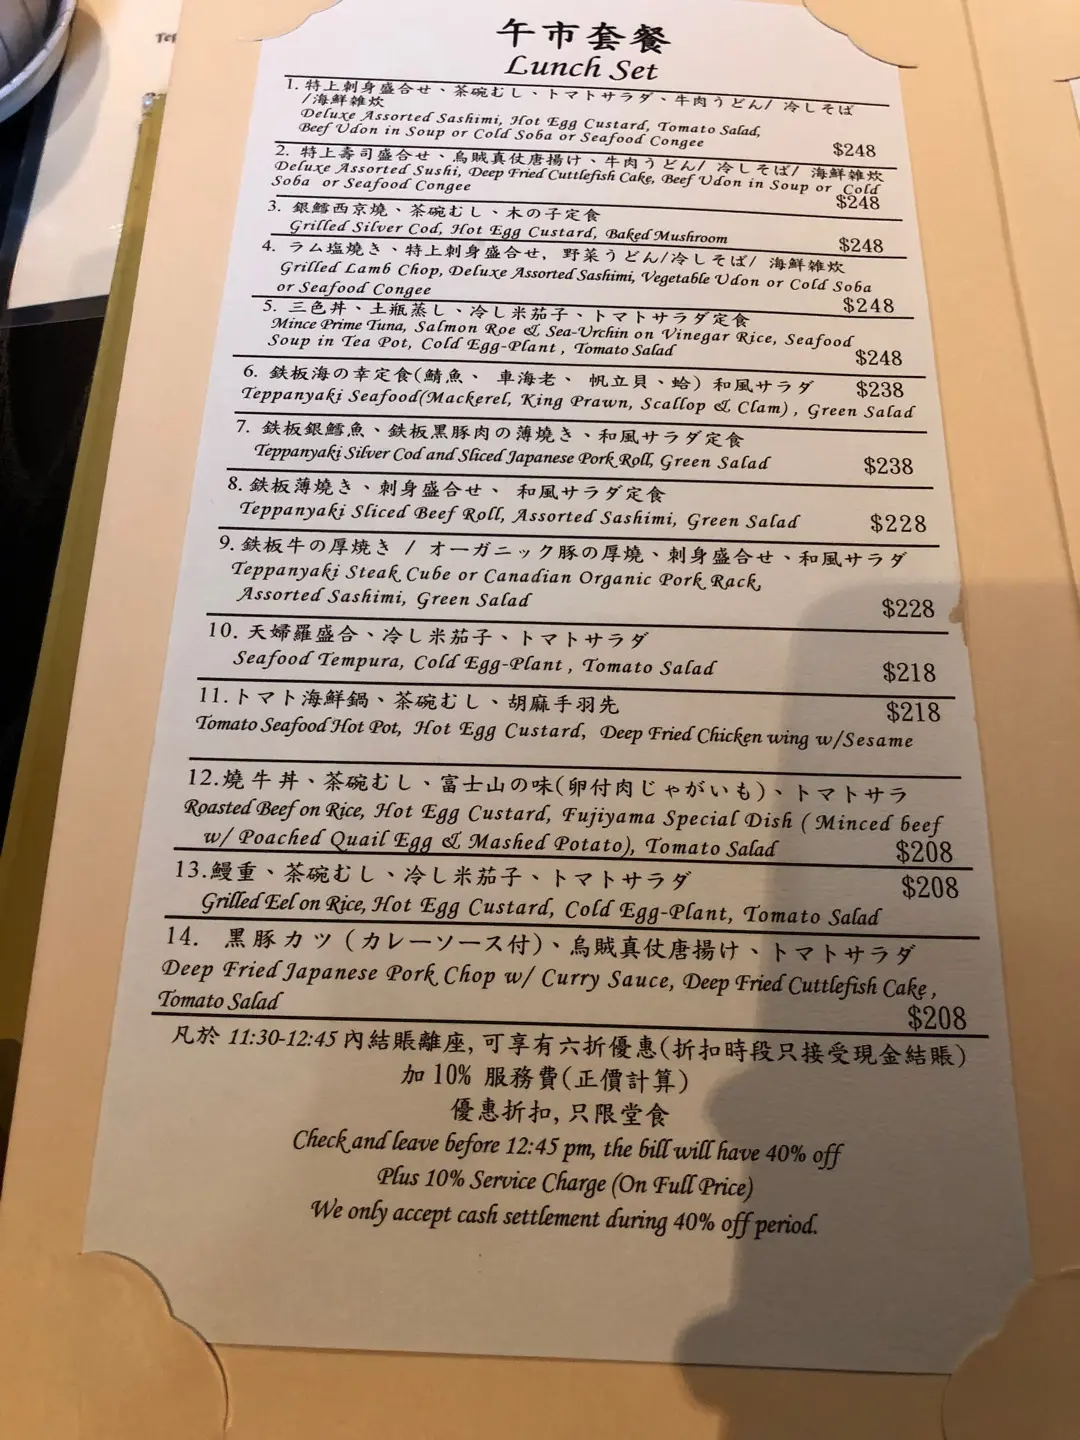 Tep
午市套餐
Lunch Set
1. 特上刺身盛合せ、茶碗むし、トマトサラダ、牛肉うどん/ 冷しそば
/海鮮雑炊
Deluxe Assorted Sashimi, Hot Egg Custard, Tomato Salad,
Beef Udon in Soup or Cold Soba or Seafood Congee
$248
2. 特上壽司盛合せ、烏賊真仗唐揚げ、牛肉うどん/ 冷しそば/ 海鮮雑炊
Deluxe Assorted Sushi, Deep Fried Cuttlefish Cake, Beef Udon in Soup or Cold
Soba or Seafood Congee
$248
3. 銀鱈西京燒、茶碗むし、木の子定食
Grilled Silver Cod, Hot Egg Custard, Baked Mushroom
$248
4. ラム塩燒き、特上刺身盛合せ, 野菜うどん/冷しそば/ 海鮮雑炊
Grilled Lamb Chop, Deluxe Assorted Sashimi, Vegetable Udon or Cold Soba
or Seafood Congee
$248
5. 三色丼、土瓶蒸し、冷し米茄子、トマトサラダ定食
Mince Prime Tuna, Salmon Roe & Sea-Urchin on Vinegar Rice, Seafood
Soup in Tea Pot, Cold Egg-Plant , Tomato Salad
$248
6. 鉄板海の幸定食(鯖魚、 車海老、 帆立貝、蛤) 和風サラダ $238
Teppanyaki Seafood(Mackerel, King Prawn, Scallop & Clam) , Green Salad
7. 鉄板銀鱈魚、鉄板黒豚肉の薄燒き、和風サラダ定食
Teppanyaki Silver Cod and Sliced Japanese Pork Roll, Green Salad
$238
8. 鉄板薄燒き、刺身盛合せ、 和風サラダ定食
Teppanyaki Sliced Beef Roll, Assorted Sashimi, Green Salad
$228
9. 鉄板牛の厚燒き / オーガニック豚の厚燒、刺身盛合せ、和風サラダ
Teppanyaki Steak Cube or Canadian Organic Pork Rack,
Assorted Sashimi, Green Salad
$228
10. 天婦羅盛合、冷し米茄子、トマトサラダ
Seafood Tempura, Cold Egg-Plant , Tomato Salad
$218
11.トマト海鮮鍋、茶碗むし、胡麻手羽先
$218
Tomato Seafood Hot Pot, Hot Egg Custard, Deep Fried Chicken wing w/Sesame
12.燒牛丼、茶碗むし、富士山の味(卵付肉じゃがいも)、トマトサラ
Roasted Beef on Rice, Hot Egg Custard, Fujiyama Special Dish ( Minced beef
w/ Poached Quail Egg & Mashed Potato), Tomato Salad
$208
13.鰻重、茶碗むし、冷し米茄子、トマトサラダ
$208
Grilled Eel on Rice, Hot Egg Custard, Cold Egg-Plant, Tomato Salad
14. 黒豚カツ (カレーソース付)、烏賊真仗唐揚げ、トマトサラダ
Deep Fried Japanese Pork Chop w/ Curry Sauce, Deep Fried Cuttlefish Cake ,
Tomato Salad
$208
凡於 11:30-12:45 內結賬離座, 可享有六折優惠(折扣時段只接受現金結賬)
加 10% 服務費(正價計算)
優惠折扣, 只限堂食
Check and leave before 12:45 pm, the bill will have 40% off
Plus 10% Service Charge (On Full Price)
We only accept cash settlement during 40% off period.